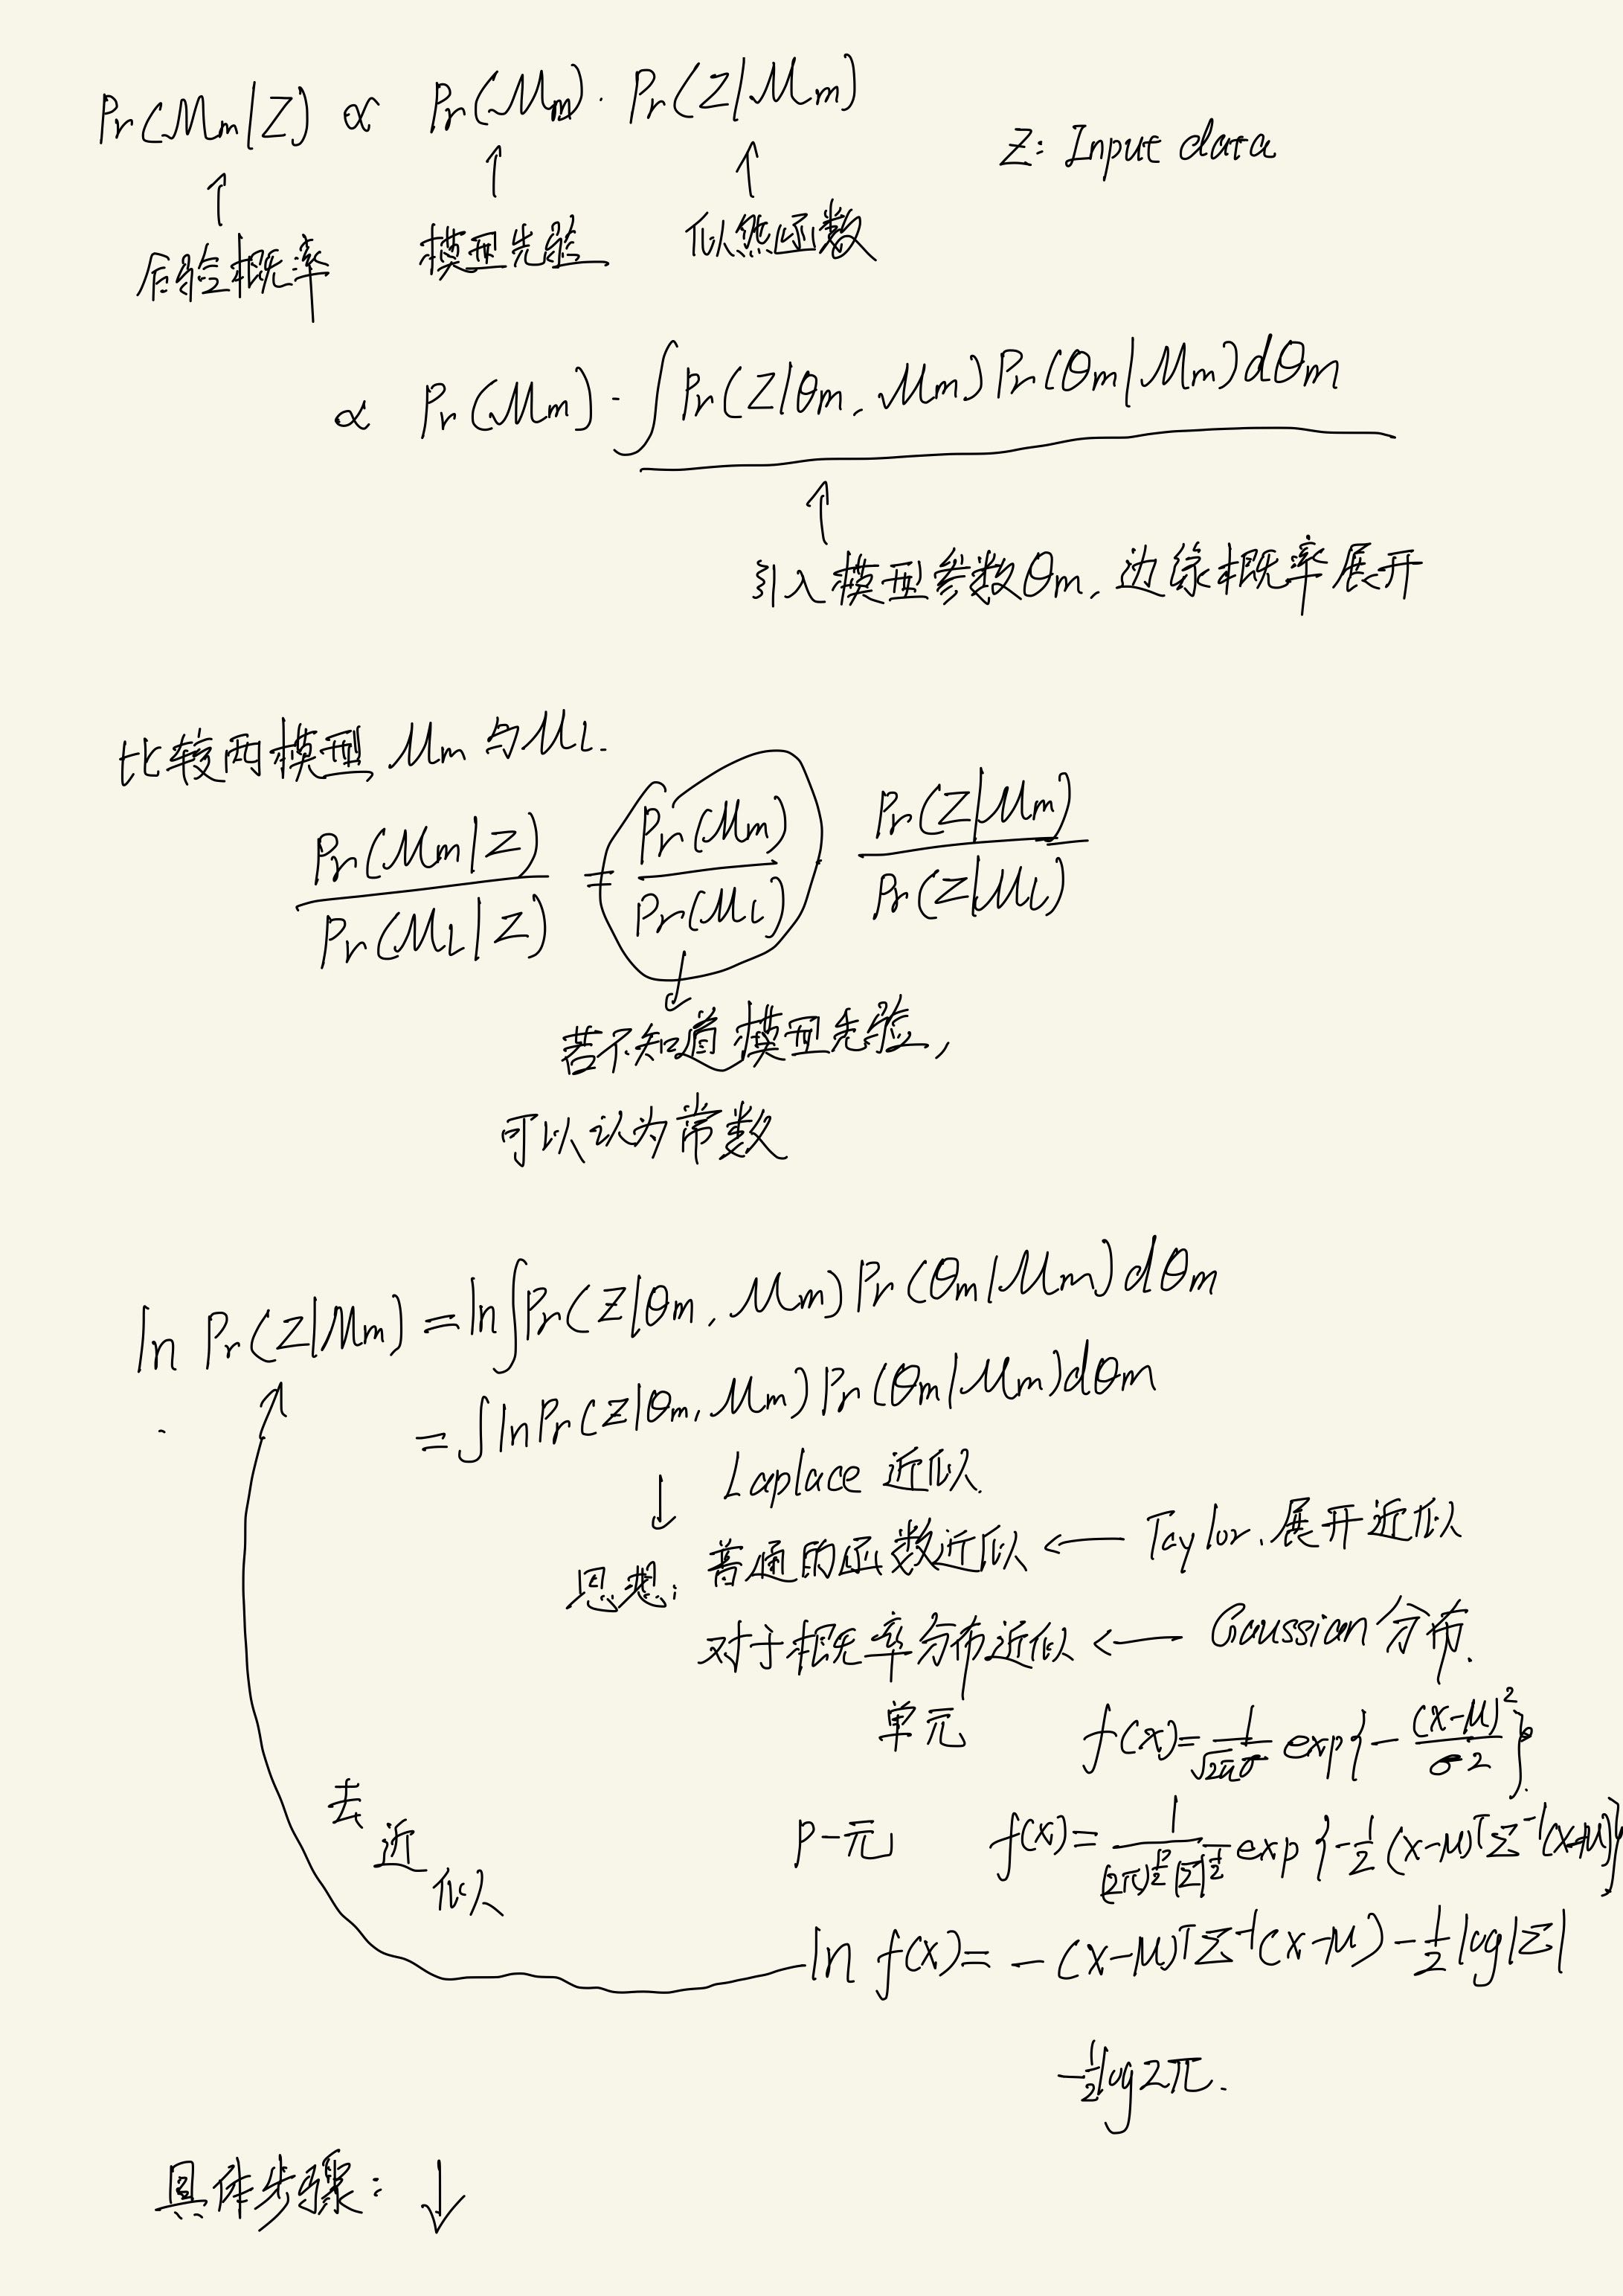 Pr(Mm|Z) ∝ Pr(Mm)·Pr(Z|Mm)
Z: Input data
↑ ↑ ↑
后验概率 模型先验 似然函数
∝ Pr(Mm)·∫Pr(Z|θm, Mm)Pr(θm|Mm)dθm
↑
引入模型参数θm, 边缘概率展开
比较两模型 Mm 与 ML.
Pr(Mm|Z) / Pr(ML|Z) = Pr(Mm) / Pr(ML) · Pr(Z|Mm) / Pr(Z|ML)
↓
若不知道模型先验,
可以认为常数
ln Pr(Z|Mm) = ln∫Pr(Z|θm, Mm)Pr(θm|Mm)dθm
= ∫lnPr(Z|θm, Mm)Pr(θm|Mm)dθm
↓ Laplace 近似.
思想: 普通的函数近似 ← Taylor.展开近似
对于概率分布近似 ← Gaussian分布.
单元 f(x)=1/√2πσ exp{-(x-μ)²/σ2}.
p-元 f(x)=1/(2π)^{p/2}|Σ|^{1/2} exp{-1/2(x-μ)ᵀΣ⁻¹(x-μ)}
去近似
ln f(x)= -(x-μ)ᵀΣ⁻¹(x-μ)-1/2log|Σ|
-1/2log2π.
具体步骤: ↓